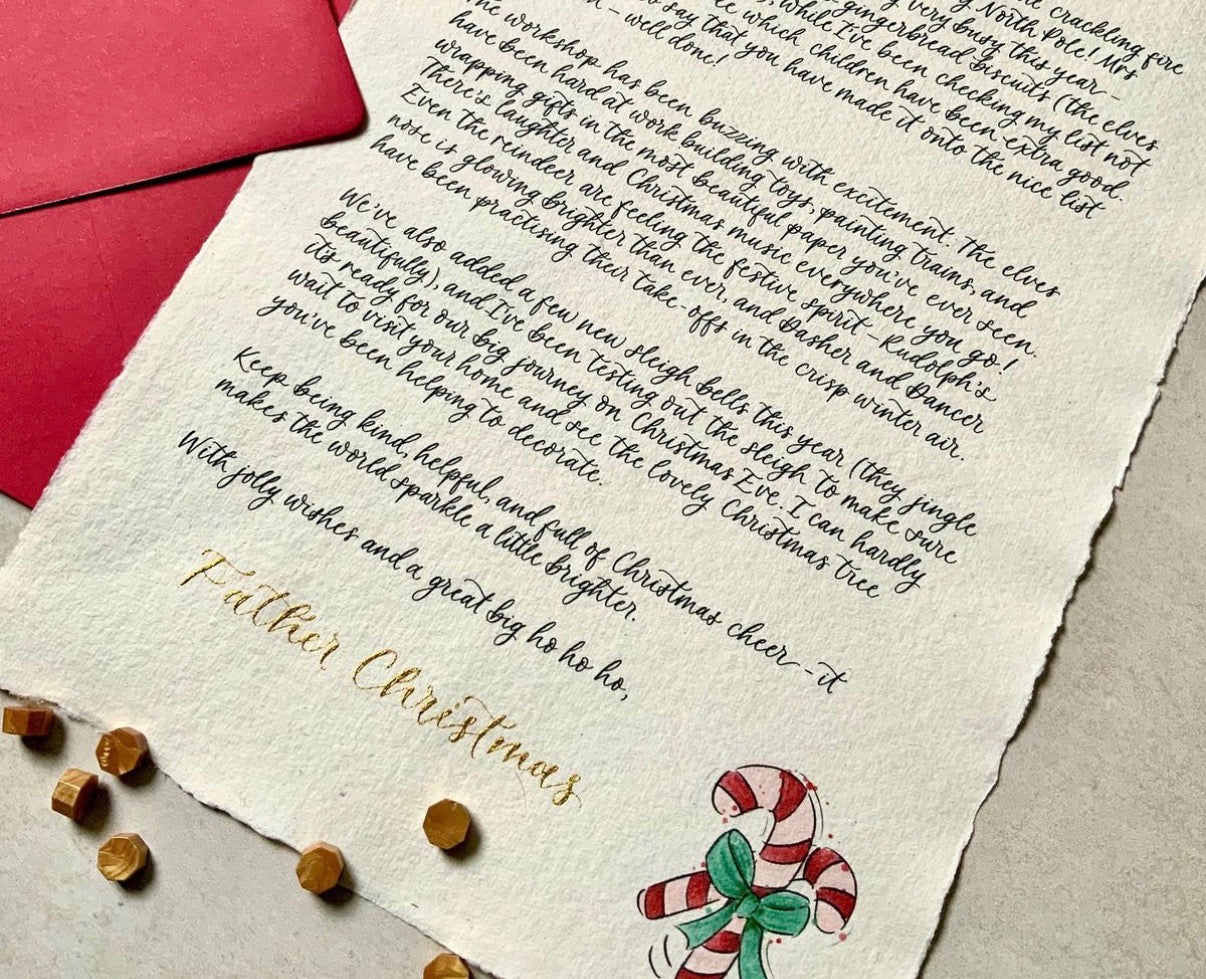 crackling fire
North Pole! Mrs
very busy this year -
gingerbread biscuits (the elves
, while I've been checking my list not
which children have been extra good.
say that you have made it onto the nice list
- well done!
The workshop has been buzzing with excitement. The elves
have been hard at work building toys, painting trains, and
wrapping gifts in the most beautiful paper you've ever seen.
There's laughter and Christmas music everywhere you go!
Even the reindeer are feeling the festive spirit - Rudolph's
nose is glowing brighter than ever, and Dasher and Dancer
have been practising their take-offs in the crisp winter air.
We've also added a few new sleigh bells this year (they jingle
beautifully), and I've been testing out the sleigh to make sure
it's ready for our big journey on Christmas Eve. I can hardly
wait to visit your home and see the lovely Christmas tree
you've been helping to decorate.
Keep being kind, helpful, and full of Christmas cheer - it
makes the world sparkle a little brighter.
With jolly wishes and a great big ho ho ho,
Father Christmas